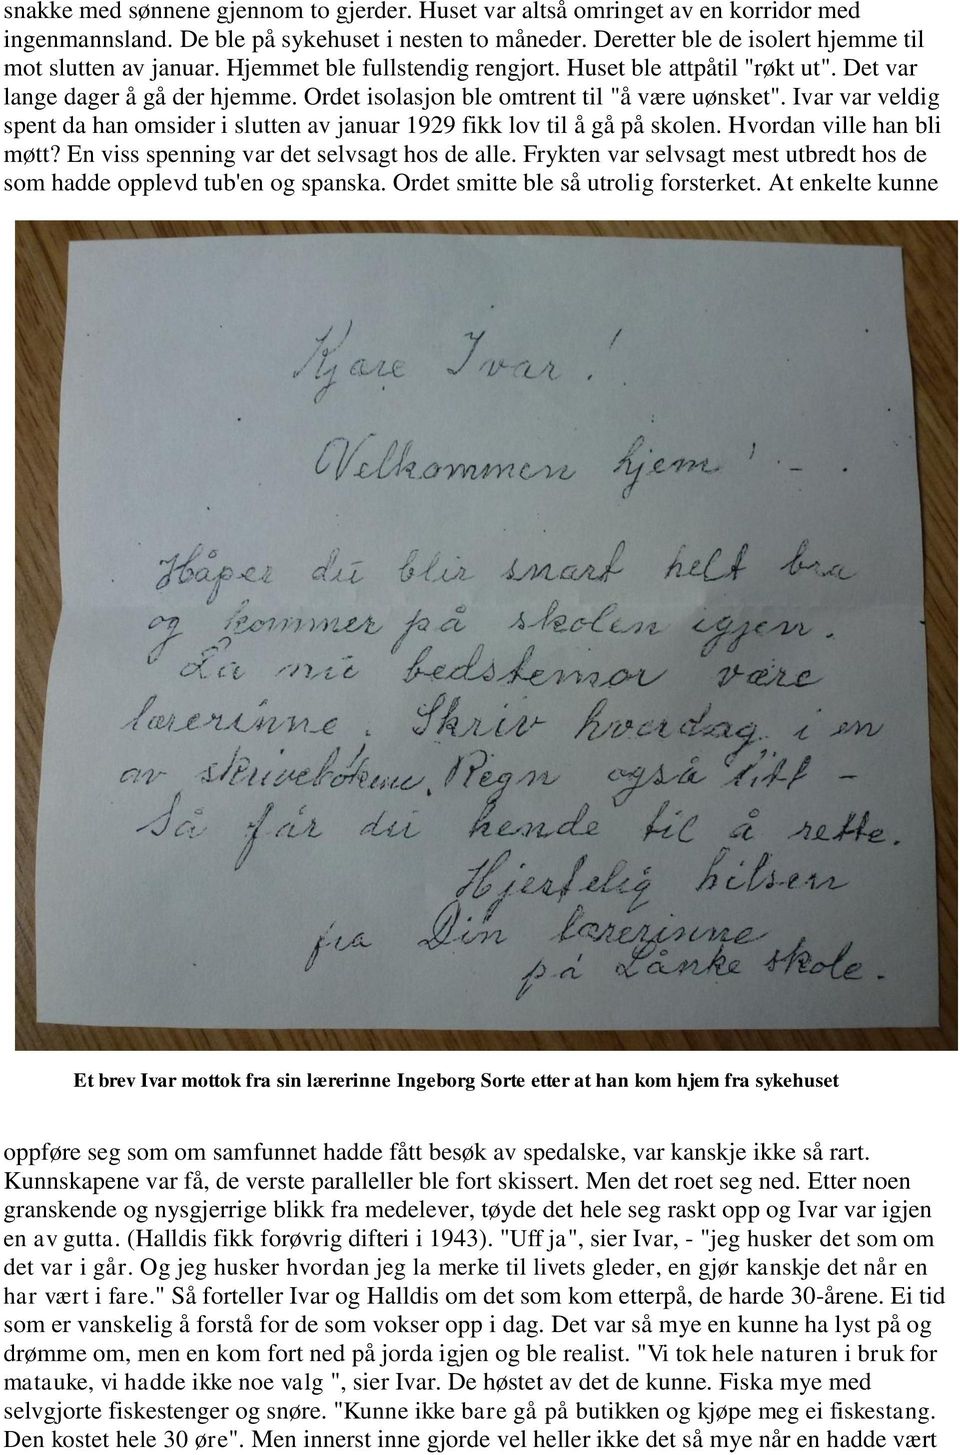 snakke med sønnene gjennom to gjerder. Huset var altså omringet av en korridor med
ingenmannsland. De ble på sykehuset i nesten to måneder. Deretter ble de isolert hjemme til
mot slutten av januar. Hjemmet ble fullstendig rengjort. Huset ble attpåtil "røkt ut". Det var
lange dager å gå der hjemme. Ordet isolasjon ble omtrent til "å være uønsket". Ivar var veldig
spent da han omsider i slutten av januar 1929 fikk lov til å gå på skolen. Hvordan ville han bli
møtt? En viss spenning var det selvsagt hos de alle. Frykten var selvsagt mest utbredt hos de
som hadde opplevd tub'en og spanska. Ordet smitte ble så utrolig forsterket. At enkelte kunne
Kjære Ivar!
Velkommen hjem! - .
Håper du blir snart helt bra
og kommer på skolen igjen.
La nu bedstemor være
lærerinne. Skriv hverdag i en
av skrivebøkene. Regn også litt -
Så får du hende til å rette.
Hjertelig hilsen
fra Din lærerinne
på Lånke skole.
Et brev Ivar mottok fra sin lærerinne Ingeborg Sorte etter at han kom hjem fra sykehuset
oppføre seg som om samfunnet hadde fått besøk av spedalske, var kanskje ikke så rart.
Kunnskapene var få, de verste paralleller ble fort skissert. Men det roet seg ned. Etter noen
granskende og nysgjerrige blikk fra medelever, tøyde det hele seg raskt opp og Ivar var igjen
en av gutta. (Halldis fikk forøvrig difteri i 1943). "Uff ja", sier Ivar, - "jeg husker det som om
det var i går. Og jeg husker hvordan jeg la merke til livets gleder, en gjør kanskje det når en
har vært i fare." Så forteller Ivar og Halldis om det som kom etterpå, de harde 30-årene. Ei tid
som er vanskelig å forstå for de som vokser opp i dag. Det var så mye en kunne ha lyst på og
drømme om, men en kom fort ned på jorda igjen og ble realist. "Vi tok hele naturen i bruk for
matauke, vi hadde ikke noe valg ", sier Ivar. De høstet av det de kunne. Fiska mye med
selvgjorte fiskestenger og snøre. "Kunne ikke bare gå på butikken og kjøpe meg ei fiskestang.
Den kostet hele 30 øre". Men innerst inne gjorde vel heller ikke det så mye når en hadde vært